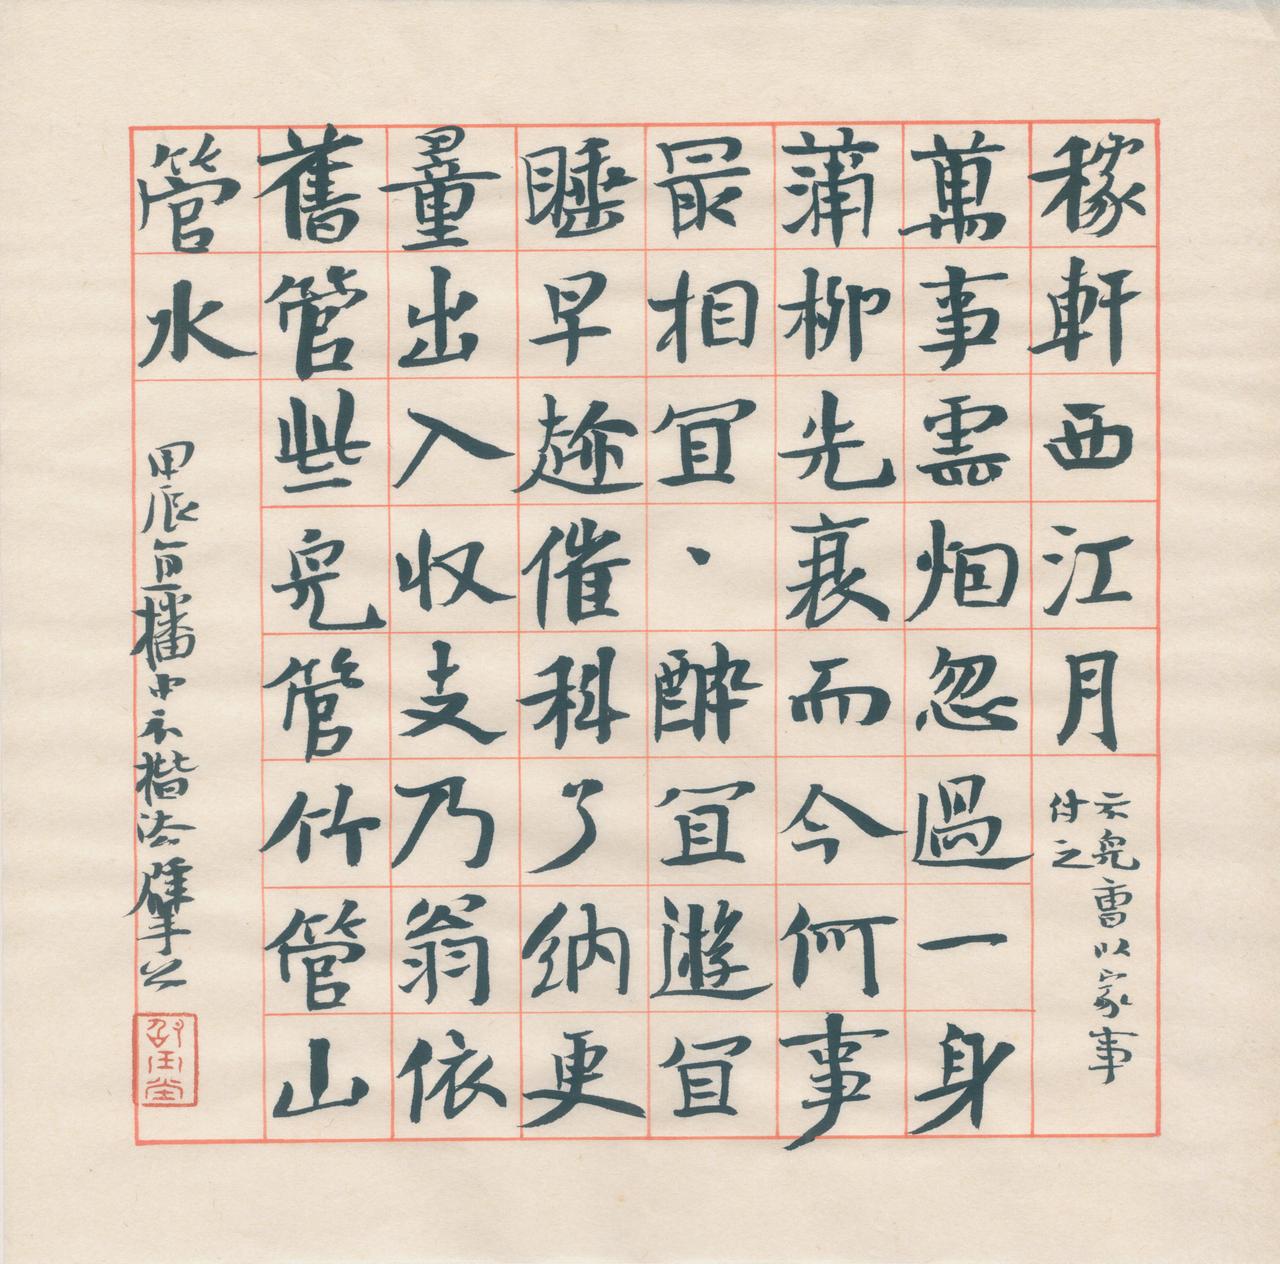 稼軒西江月
示兒曹以家事
付之
萬事雲烟忽過一身
蒲柳先衰而今何事
最相冝、醉冝遊冝
睡早趂催科了納更
量出入収支乃翁依
舊管些兒管竹管山
管水
甲辰直播中示楷法